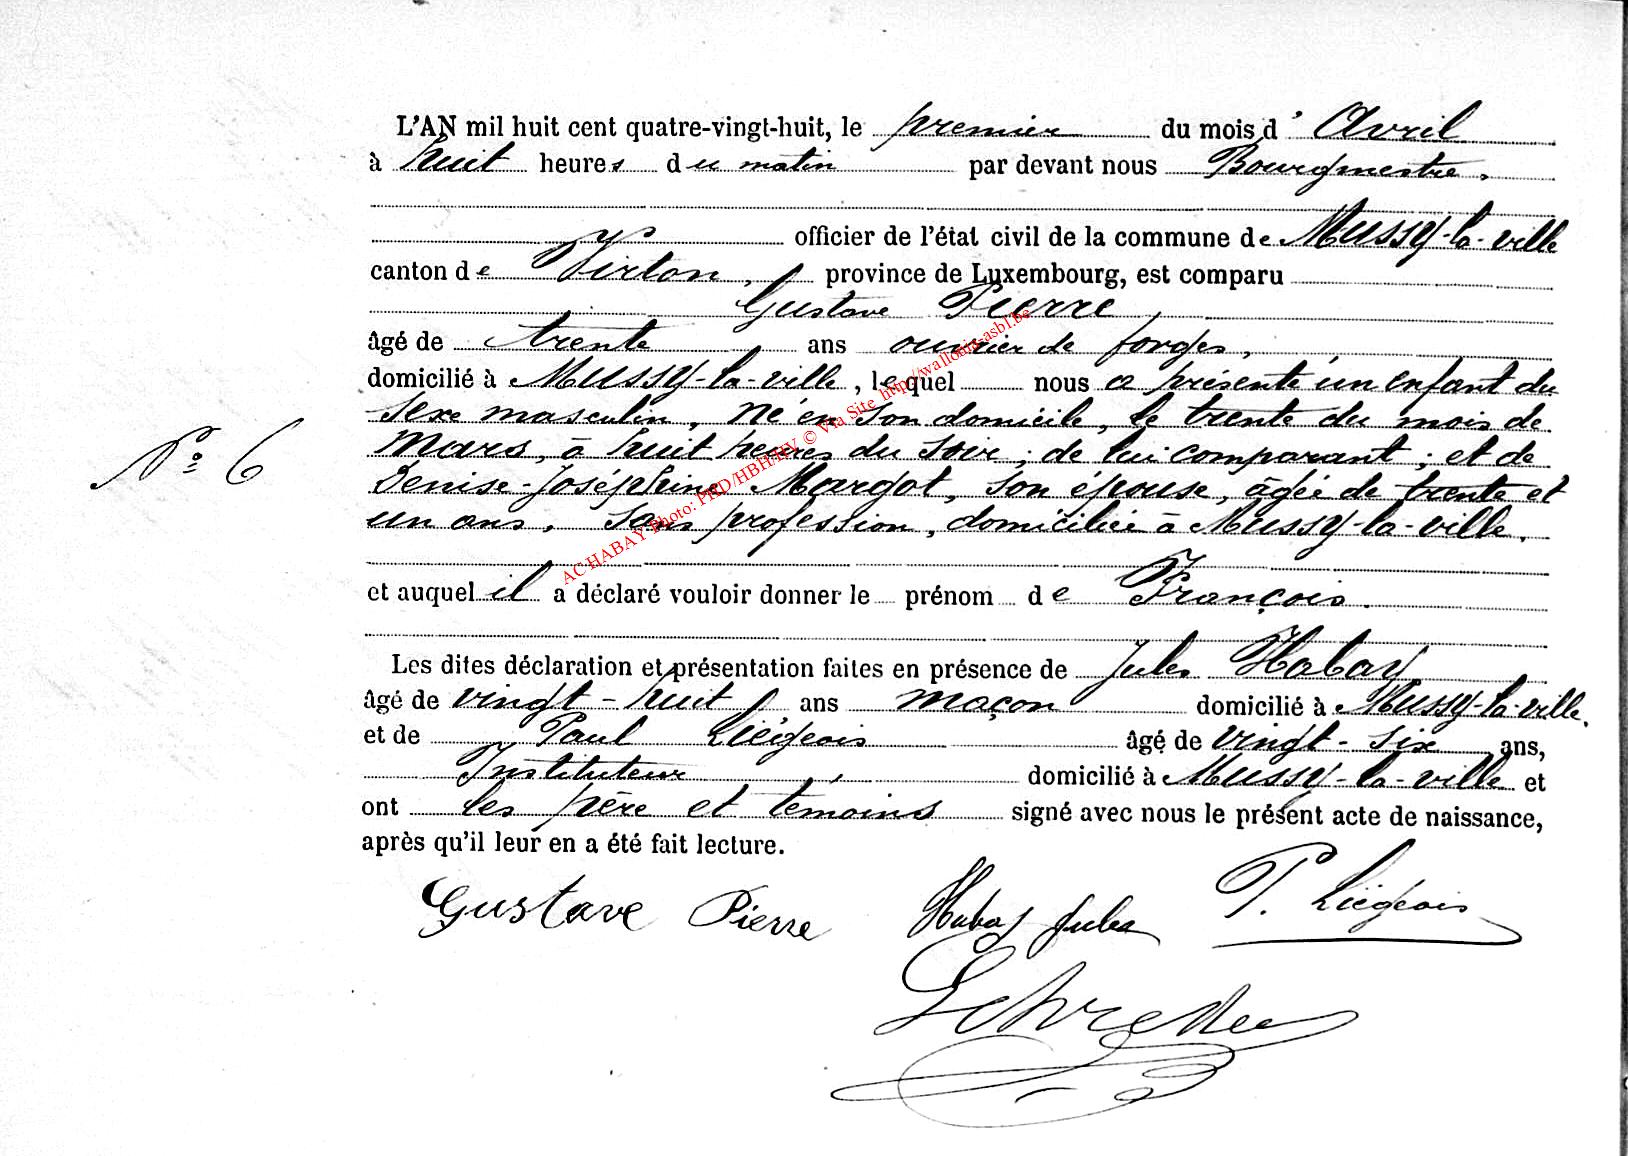 L'AN mil huit cent quatre-vingt-huit, le premier du mois d' Avril
à huit heures du matin par devant nous Bourgmestre,
officier de l'état civil de la commune de Mussy-la-ville
canton de Virton, province de Luxembourg, est comparu
Gustave Pierre
âgé de trente ans ouvrier de forges,
domicilié à Mussy-la-ville, lequel nous a présenté un enfant du
sexe masculin, né en son domicile, le trente du mois de
Nº 6
Mars, à huit heures du soir; de lui comparant; et de
Denise-Joséphine Margot, son épouse, âgée de trente et
un ans, sans profession, domiciliée à Mussy-la-ville,
et auquel il a déclaré vouloir donner le prénom de François.
Les dites déclaration et présentation faites en présence de Jules Habay
âgé de vingt-huit ans maçon domicilié à Mussy-la-ville,
et de Paul Liégeois âgé de vingt-six ans,
Instituteur, domicilié à Mussy-la-ville et
ont les père et témoins signé avec nous le présent acte de naissance,
après qu'il leur en a été fait lecture.
Gustave Pierre Habay Jules P. Liégeois
AC HABAY Photo: PHD/HBH/HV © Via Site http://wallonia-asbl.be